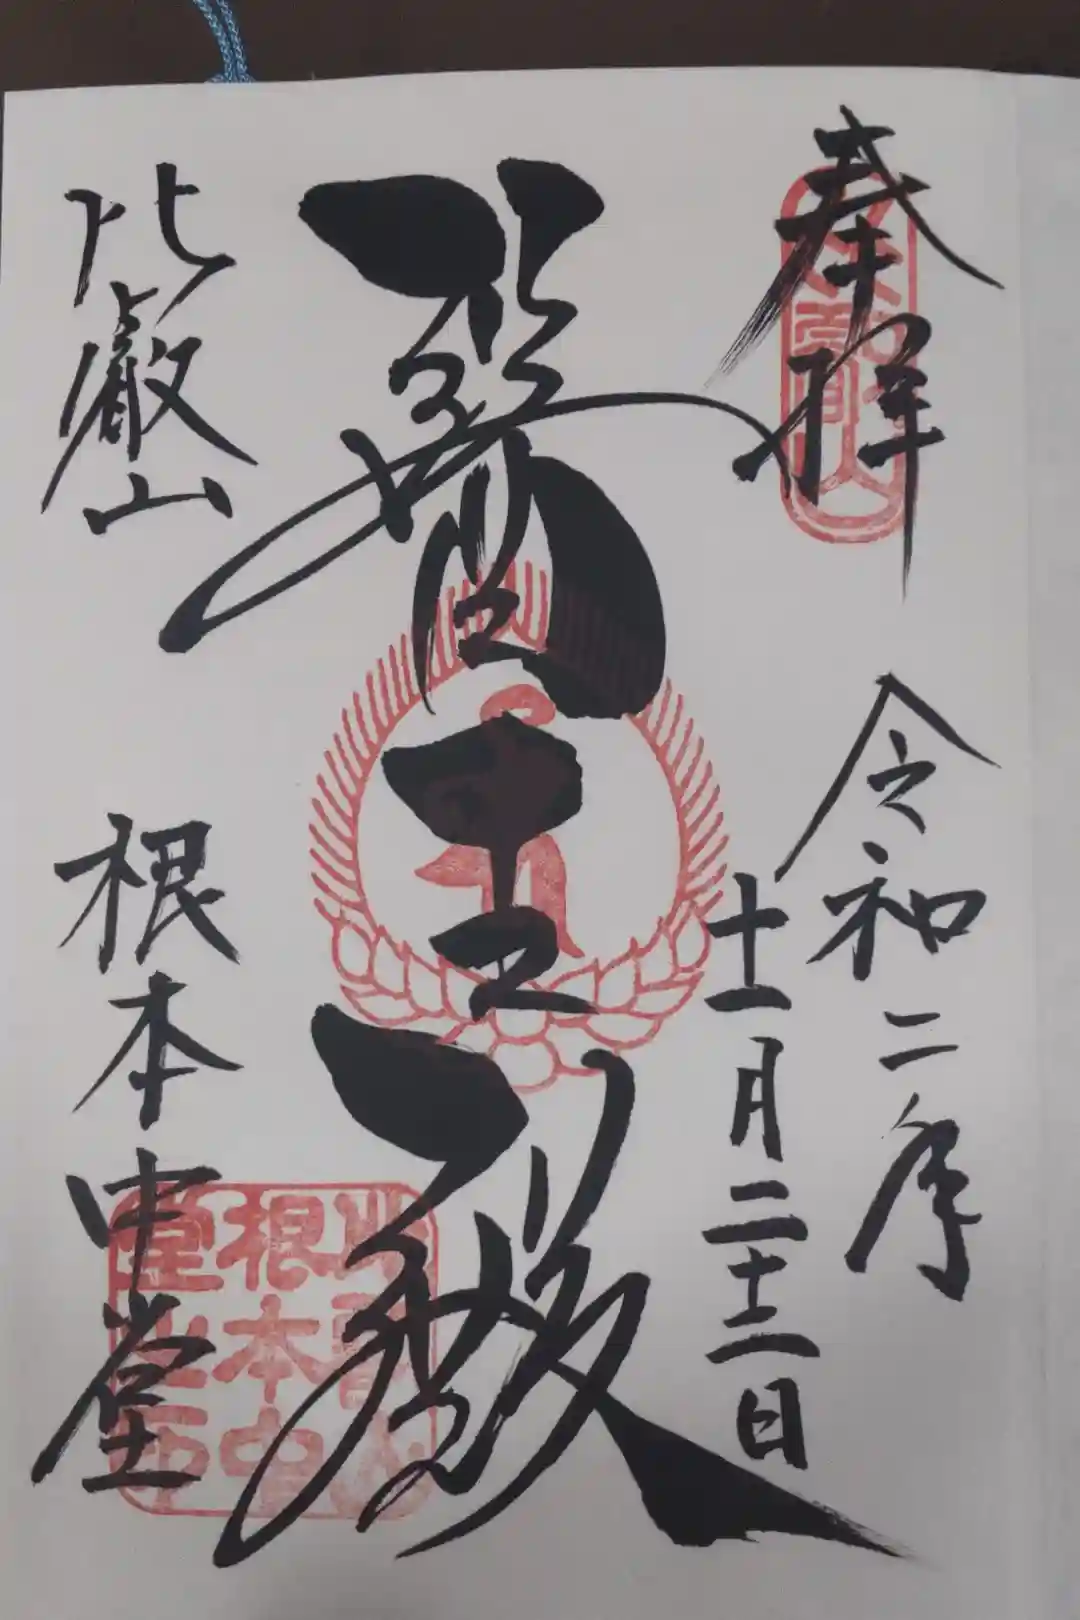 奉拝
令和二年
十一月二十三日
醫王殿
比叡山
根本中堂
比叡山
根本中
堂之印